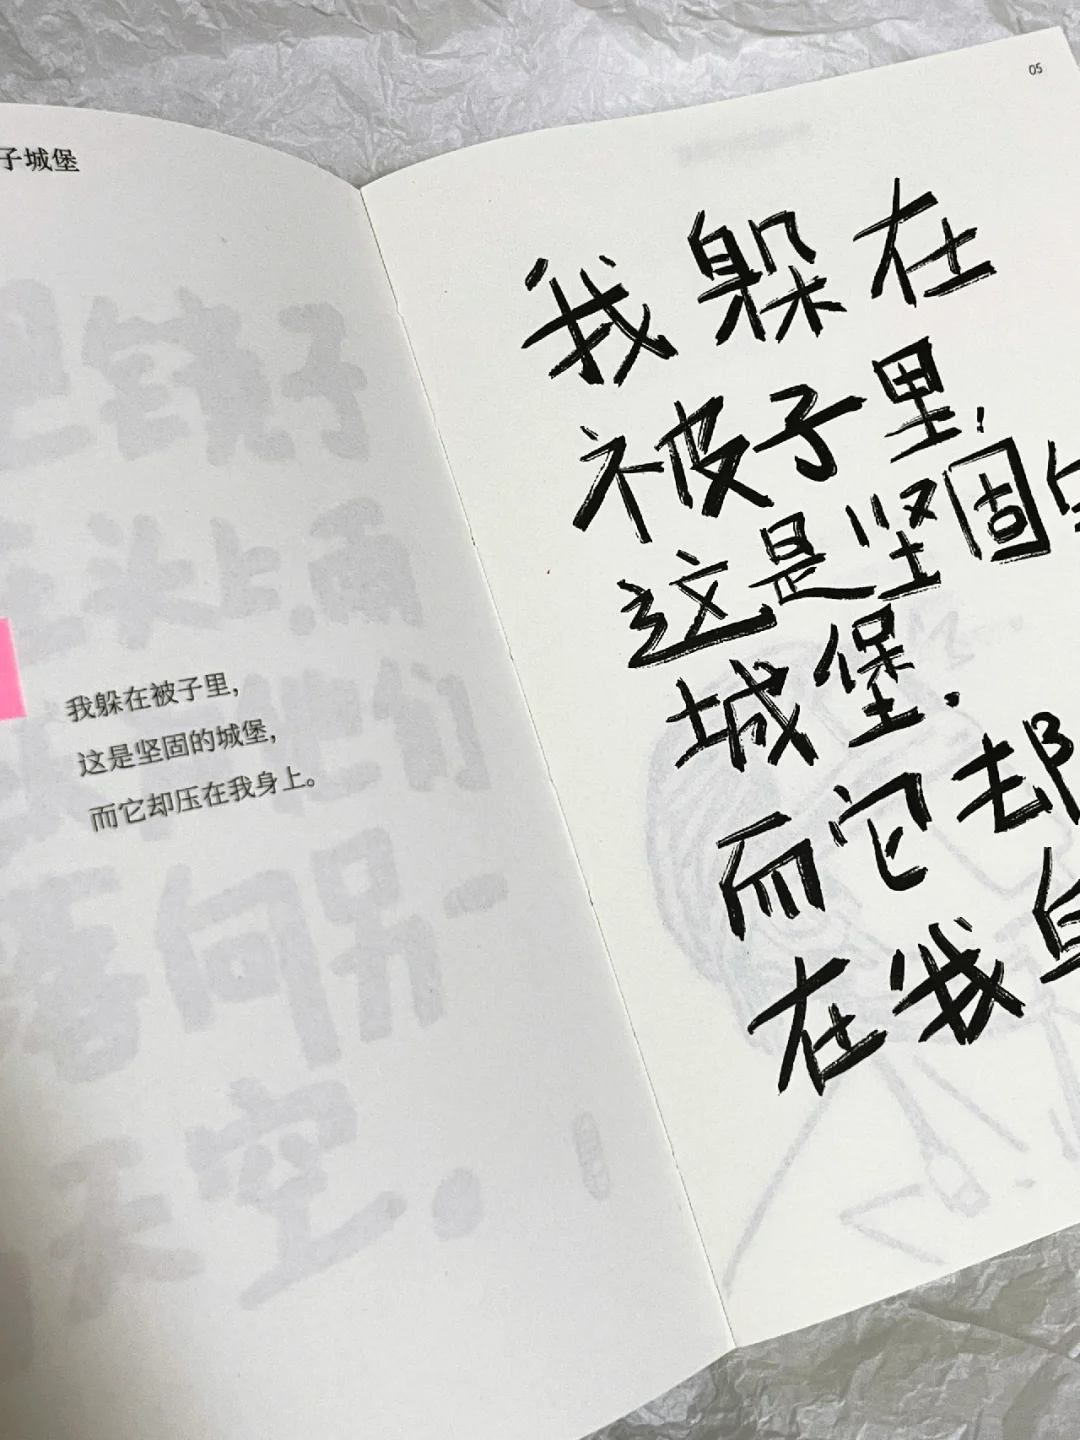 子城堡
我躲在被子里，
这是坚固的城堡，
而它却压在我身上。
05
我躲在
被子里，
这是坚固
城堡.
而它却
在我身